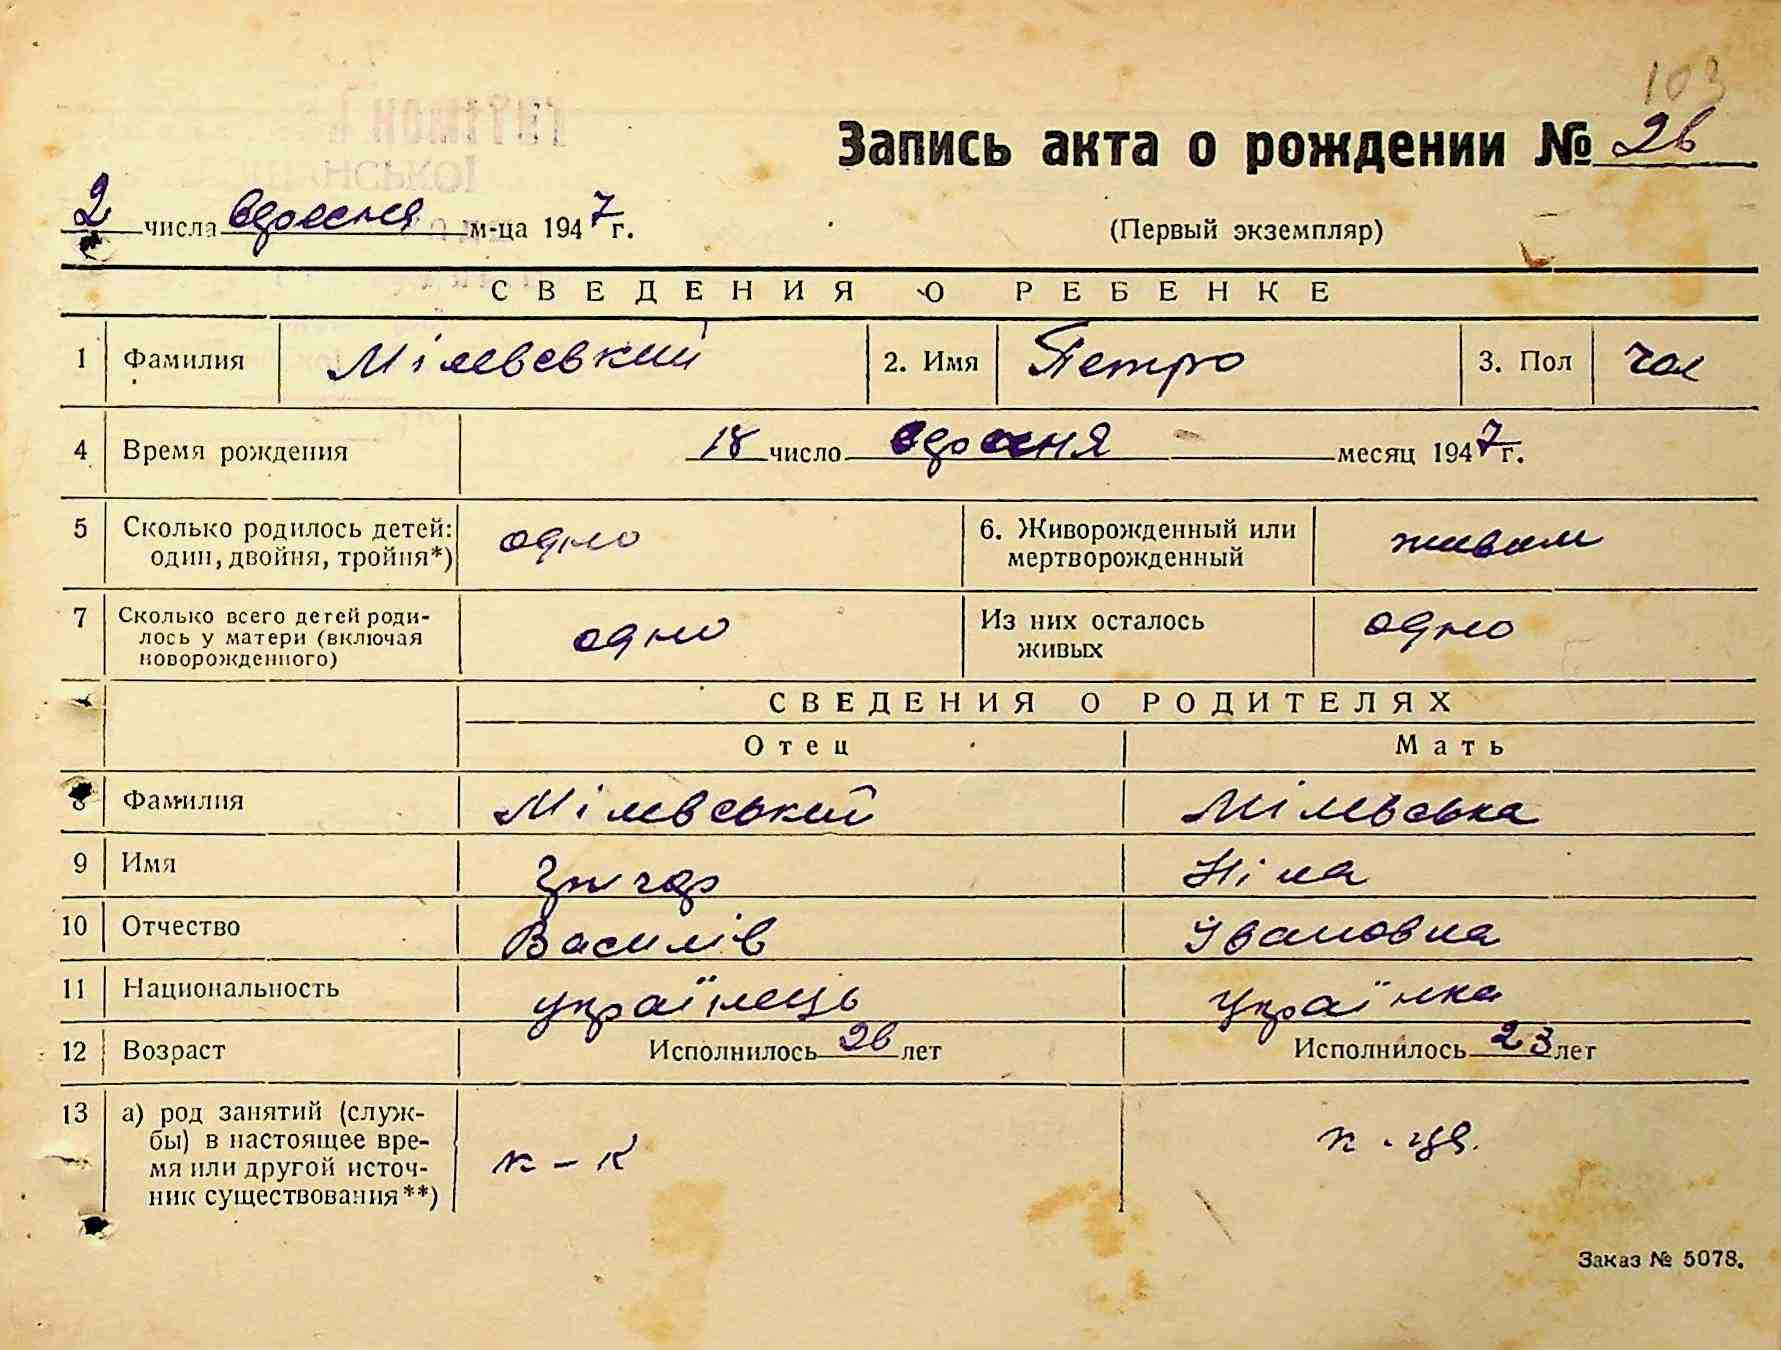 103
Запись акта о рождении № 26
2 числа вересня м-ца 1947 г.
(Первый экземпляр)
СВЕДЕНИЯ О РЕБЕНКЕ
1 Фамилия Мілевський 2. Имя Петро 3. Пол чол
4 Время рождения 18 число вересня месяц 1947 г.
5 Сколько родилось детей: один, двойня, тройня*) одно 6. Живорожденный или мертворожденный живим
7 Сколько всего детей родилось у матери (включая новорожденного) одно Из них осталось живых одно
СВЕДЕНИЯ О РОДИТЕЛЯХ
Отец Мать
8 Фамилия Мілевський Мілевська
9 Имя Ніна
10 Отчество Василів Івановна
11 Национальность українець Українка
12 Возраст Исполнилось 26 лет Исполнилось 23 лет
13 а) род занятий (служ-
бы) в настоящее вре-
мя или другой источ-
ник существования**) к-к к-ця.
Заказ № 5078.